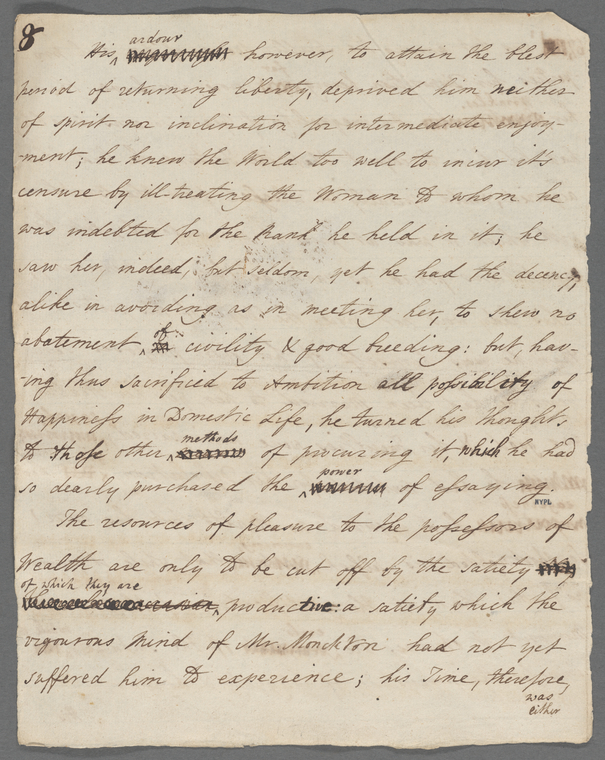 8
ardour
His, however, to attain the blest
period of returning liberty, deprived him neither
of spirit nor inclination for intermediate enjoy-
ment; he knew the World too well to incur it's
censure by ill-treating the Woman to whom he
was indebted for the Rank he held in it; he
saw her, indeed, but seldom, yet he had the decency,
alike in avoiding as in meeting her, to shew no
of
abatement civility & good breeding: but, hav-
-ing thus sacrificed to Ambition all possibility of
Happiness in Domestic Life, he turned his thoughts
methods
to those other of procuring it, which he had
power
so dearly purchased the of essaying.
NYPL
The resources of pleasure to the possessors of
Wealth are only to be cut off by the satiety
of which they are
productive: a satiety which the
vigourous mind of Mr. Monckton had not yet
suffered him to experience; his Time, therefore,
was
either